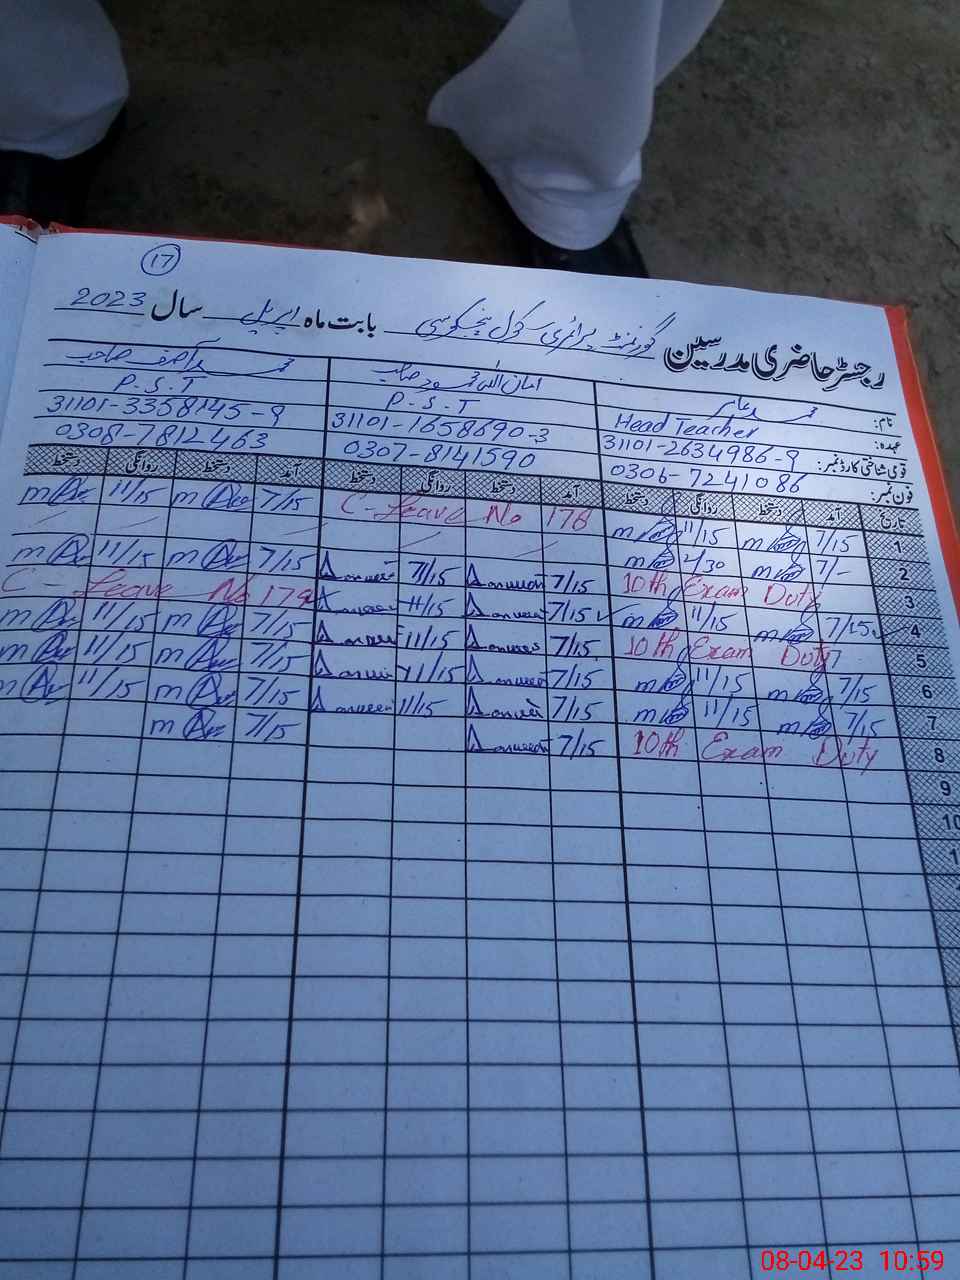 17
رجسٹر حاضری مدرسین گورنمنٹ پرائمری سکول بابت ماہ اپریل سال 2023
نام: محمد عامر امان اللہ محمود صاحب محمد آصف صاحب
عہدہ: Head Teacher P.S.T P.S.T
قومی شناختی کارڈ نمبر: 31101-2634986-9 31101-1658690-3 31101-3358145-9
فون نمبر: 0306-7241086 0307-8141590 0308-7812463
تاریخ آمد دستخط روانگی دستخط آمد دستخط روانگی دستخط آمد دستخط روانگی دستخط
1 7/15 11/15 C-Leave No 178 7/15 11/15
2 7/- 2/30
3 10th Exam Duty 7/15 11/15 7/15 11/15
4 7/15 11/15 7/15 11/15 C-Leave No 179
5 10th Exam Duty 7/15 11/15 7/15 11/15
6 7/15 11/15 7/15 11/15 7/15 11/15
7 7/15 11/15 7/15 11/15 7/15 11/15
8 10th Exam Duty 7/15 7/15
9
10
08-04-23 10:59